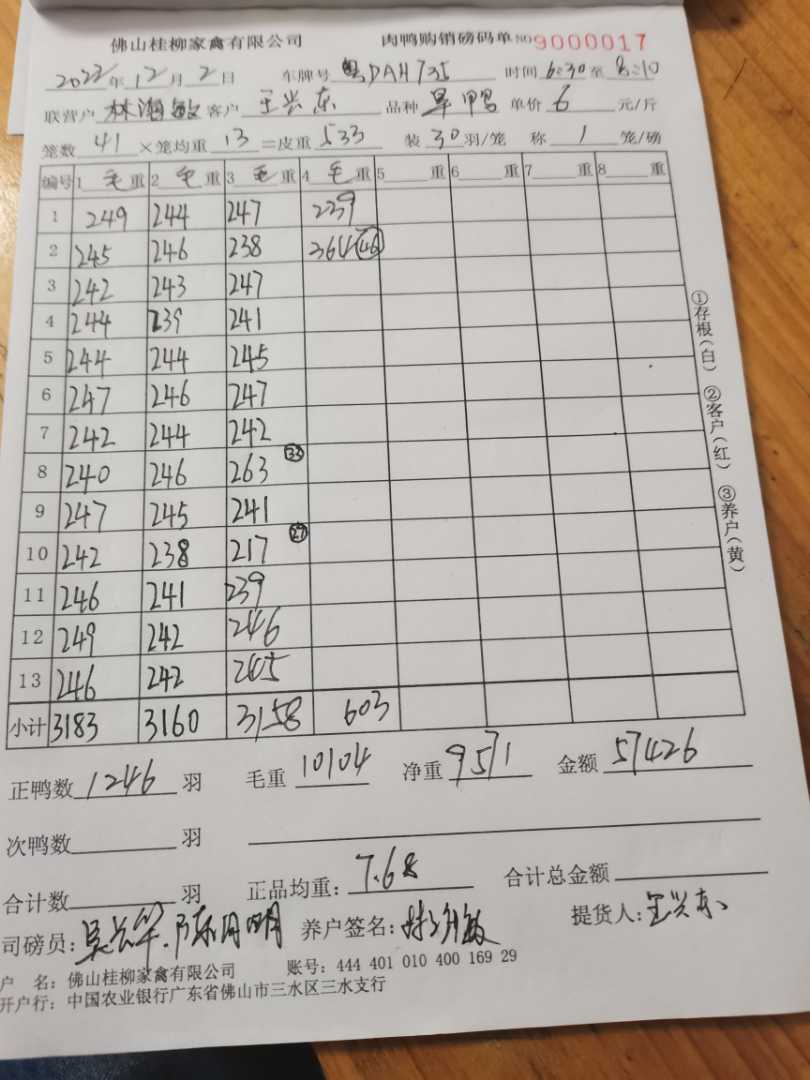 佛山桂柳家禽有限公司 肉鸭购销磅码单 NO 9000017
2022年12月2日 车牌号 粤DAH735 时间 6:30至8:10
联营户 林海敏 客户 王兴东 品种 旱鸭 单价 6 元/斤
笼数 41 ×笼均重 13 =皮重 533 装 30 羽/笼 称 1 笼/磅
编号 1 毛重 2 毛重 3 毛重 4 毛重 5 重 6 重 7 重 8 重
1 249 244 247 239
2 245 246 238 364 46
3 242 243 247
4 244 239 241
5 244 244 245
6 247 246 247
7 242 244 242
8 240 246 263 33
9 247 245 241
10 242 238 217 27
11 246 241 239
12 249 242 246
13 246 242 245
小计 3183 3160 3158 603
①存根(白) ②客户(红) ③养户(黄)
正鸭数 1246 羽 毛重 10104 净重 9571 金额 57426
次鸭数 羽
合计数 羽 正品均重: 7.68 合计总金额
司磅员: 吴兴华.陈月明 养户签名: 林海敏 提货人: 王兴东
户 名: 佛山桂柳家禽有限公司 账号: 444 401 010 400 169 29
开户行: 中国农业银行广东省佛山市三水区三水支行